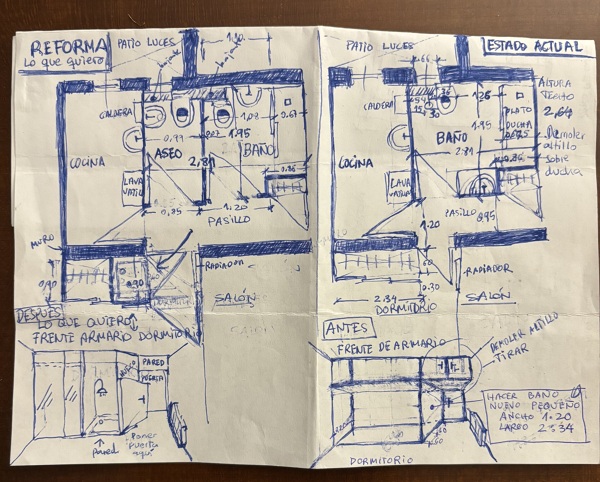 REFORMA
Lo que quiero
PATIO LUCES
bajante
bajante
1.30
CALDERA
COCINA
ASEO
0,99
1,08
0.67
1.95
2,81
BAÑO
0.86
LAVA
VATILLA
0.85
1.20
PASILLO
MURO
0,90
0.90
RADIADOR
SALÓN
DESPUES
LO QUE QUIERO
FRENTE ARMARIO DORMITORIO
PARED
PUERTA
pared
Poner
puerta
aqui
PATIO LUCES
ESTADO ACTUAL
.66
CALDERA
36
30
1.26
BAÑO
1.95
2.81
PLATO
DUCHA
ALTURA
TECHO
2,64
Demoler
altillo
sobre
ducha
COCINA
0.86
PASILLO
0,95
1.20
60
0.30
RADIADOR
2.34
SALÓN
DORMITORIO
ANTES
FRENTE DE ARMARIO
DEMOLER ALTILLO
TIRAR
HACER BAÑO
NUEVO PEQUEÑO
ANCHO 1.20
LARGO 2334
DORMITORIO